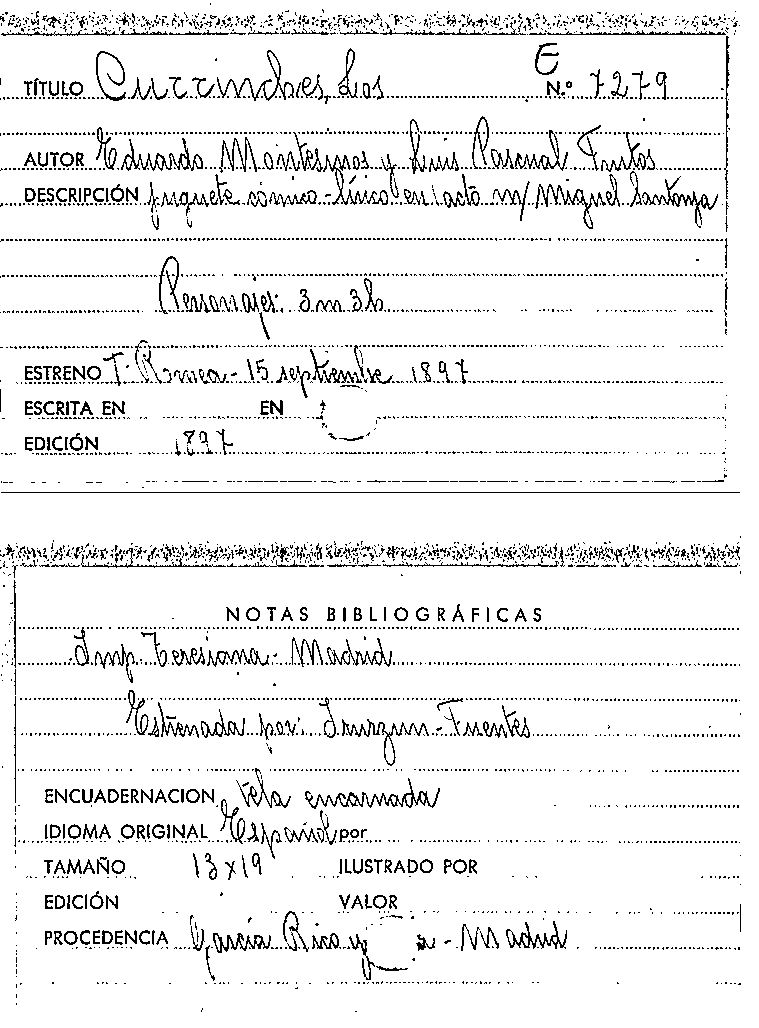 E
TÍTULO Currinches, Los N.º 7279
AUTOR Eduardo Montesinos y Luis Pascual Frutos
DESCRIPCIÓN juguete cómico-lírico en 1 acto m/ Miguel Santonja
Personajes: 3m 3h
ESTRENO T. Romea - 15 septiembre 1897
ESCRITA EN EN
EDICIÓN 1897
NOTAS BIBLIOGRÁFICAS
Imp. Teresiana - Madrid
Estrenada por: Irurzun - Fuentes
ENCUADERNACION tela encarnada
IDIOMA ORIGINAL Español por
TAMAÑO 13x19 ILUSTRADO POR
EDICIÓN VALOR
PROCEDENCIA García Rico y - Madrid